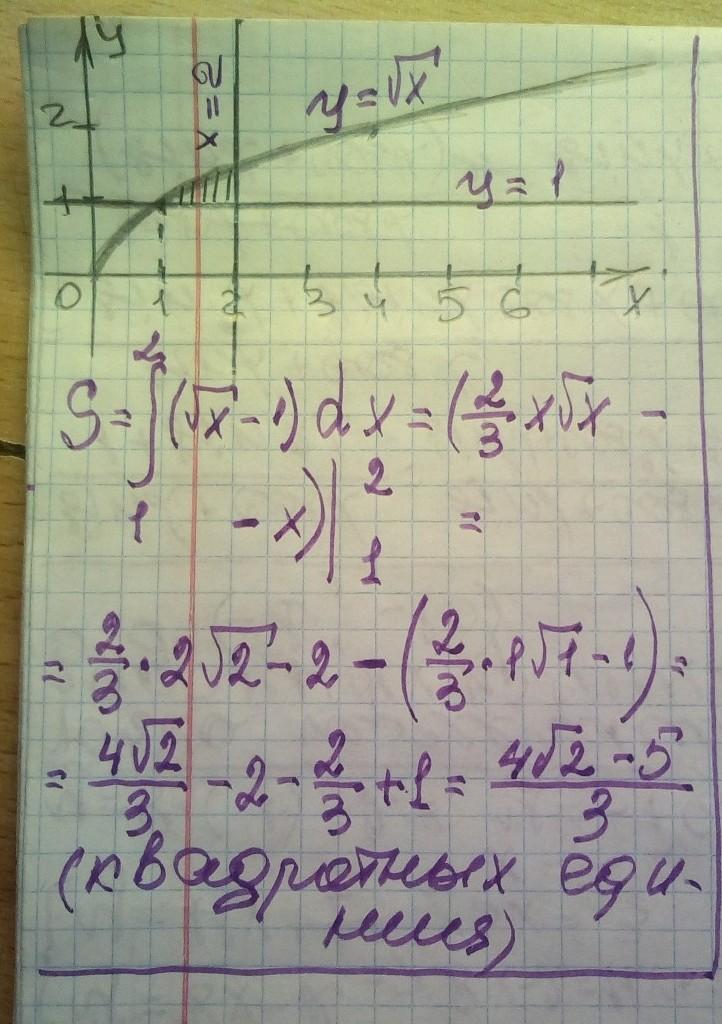 y
x = 2
y = √x
2
1
y = 1
0 1 2 3 4 5 6 x
S = ∫₁² (√x - 1) dx = (2/3 x√x -
- x)|₁² =
= 2/3 · 2√2 - 2 - (2/3 · 1√1 - 1) =
= 4√2/3 - 2 - 2/3 + 1 = (4√2 - 5)/3
(квадратных еди-
ниц)